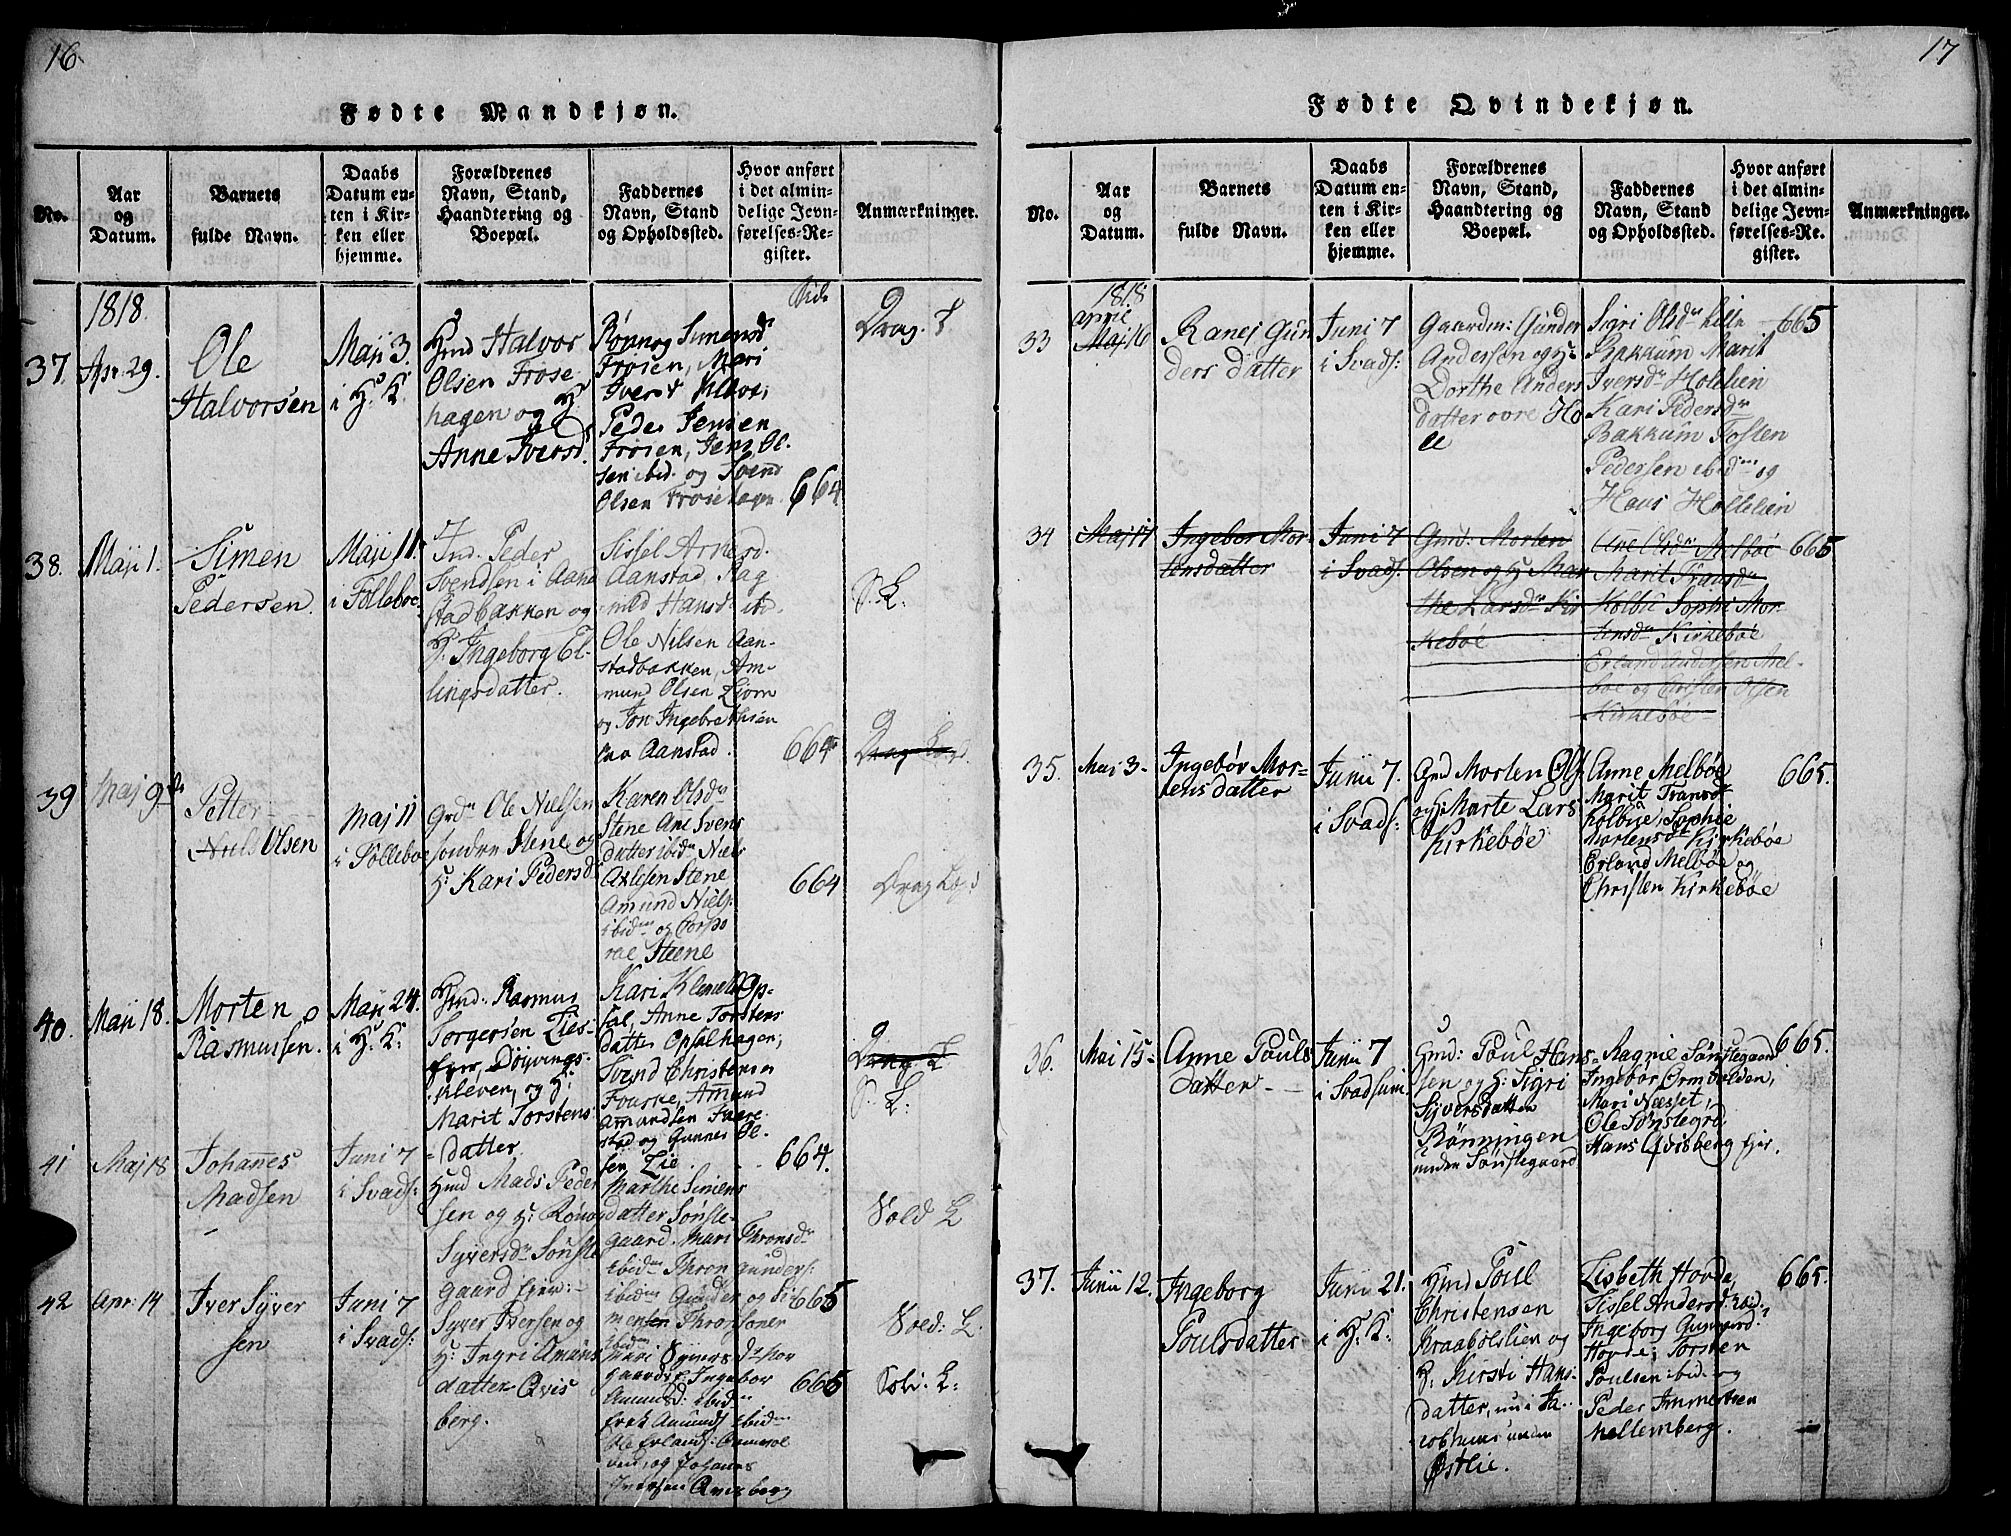 16.
Fødte Mandkjøn.
No.
Aar
og
Datum.
Barnets
fulde Navn.
Daabs
Datum en-
ten i Kir-
ken eller
hjemme.
Forældrenes
Navn, Stand,
Haandtering og
Boepæl.
Faddernes
Navn, Stand
og Opholdssted.
Hvor anført
i det almin-
delige Jevn-
førelses-Re-
gister.
Anmærkninger.
1818.
37.
Apr. 29.
Ole
Halvorsen
Maji 3.
i H: K:
Hmd Halvor
Olsen Frøse-
hagen og H:
Anne Iversd.
Rønnog Simensd
Frøisen, Mari
Peder Jensen
Frøisen, Jens Ol-
sen ibid. og Svend
Olsen Frøisehagen
Side
664
38.
Maji 1.
Simen
Pedersen.
Maji 11.
i Folleboe.
Ind. Peder
Svendsen i Aan-
stadbakken og
H. Ingeborg El-
lingsdatter.
Sissel Arnesd.
Aanstad, Rag
nild Hansd ibd.
Ole Nilsen Aan-
stadbakken, Am-
mund Olsen Liom
og Jon Ingebrethsen
Aanstad.
664
S. L:
39
Maj 9de
Petter
Niels Olsen
Maj 11
i Folleboe
Grdm Ole Nielsen
søndre Stene og
H: Kari Pedersd
Karen Olsdr
Stene Ane Svens
datter ibidm Niels
Axlesen Stene
Amund Niels:
ibidm og Corpo
ral Steene
664
40.
Maji 18.
Morten
Rasmussen.
Maji 24.
i H: K:
Hmd: Rasmus
Torgersen Lies-
kleven, og H:
Marit Torstens-
datter.
Kari Klemetsd Op-
sal, Anne Torstens
datter Opsalhagen,
Svend Christensen
Fouske, Amund
Amundsen
stad og Gunner Ol-
sen Lie.
664.
S. L:
41
Maj 18
Johannes
Madsen
Juni 7
i Svads:
Hmd Mads Peder
sen og H: Rønnog
Syversdr Sønste
gaard
Marthe Simens
datter Sønste-
gaard. Mari Thronsdr
ibidm Thron Gunders:
ibidm Gunder og Si-
mensen Thronsoner
ibidm
665
Vold L
42
Apr: 14
Iver Syver
sen
Juni 7
i Svads:
Syver Iversen og
H: Ingri Amuns
datter Qvis
berg.
Mari Syvers
Ingebor
Amunsd: ibidm
Amunds ibidm
Ole Erlands:
ven, og Johanes
Iversen Qvisberg
665
Vold: L.
17
Fødte Qvindekjøn.
No.
Aar
og
Datum.
Barnets
fulde Navn.
Daabs
Datum en-
ten i Kir-
ken eller
hjemme.
Forældrenes
Navn, Stand,
Haandtering og
Boepæl.
Faddernes
Navn, Stand
og Opholdssted.
Hvor anført
i det almin-
delige Jevn-
førelses-Re-
gister.
Anmærkninger.
1818
33
April
Maj 16
Ranei Gun
ders datter
Juni 7
i Svads:
Gaardm: Gunder
Andersen og H:
Dorthe Anders
datter øvre Ho
le
Sigri Olsdr lille
Bakkum Marit
Iversdr Holelien
Kari Pedersdr
Bakkum Tosten
Pedersen ibidm og
Hans Hollelien
665
34
Maj 17
Ingebor Mor-
tensdatter
Juni 7
i Svads:
Gmd: Morten
Olsen og H Mar
the Larsdr Kir
keböe
Ane Olsdr Melböe
Marit Transdr
Kolbu Sophi Mor
tensdr Kirkeböe
Erland Andersen Mel-
boe og Christen Olsen
Kirkeböe
665
35.
Mai 3.
Ingebör Mor-
tens datter
Junii 7
i Svads:
Gmd Morten Ols
og H: Marte Lars
Kirkebøe
Anne Melbøe
Marit Transdr
Kolbue, Sophie
Mortensdr Kirkebøe
Erland Melbøe og
Christen Kirkebøe
665.
36.
Mai 15
Anne Pouls
datter
Junii 7
i Svadsum
Hmd: Poul Hans-
sen og H: Sigri
Syversdatter
Rønningen
under Sønstegaard
Ragnie Sønstegaard
Ingebør Ormdalden,
Mari Næsset,
Ole Sønstegrd
Hans Qvisberg
665.
37.
Junii 12.
Ingeborg
Poulsdatter
Junii 21.
i H: K:
Hmd Poul
Christensen
Kraabølslien og
H. Kirsti Hans-
datter, nu i Ja-
cobhuus under
Østlie.
Lisbeth Hovde,
Sissel Andersd: ibid:
Ingeborg Gunnersd:
Hovde; Torsten
Poulsen ibid. og
Peder Immertsen
Mellemberg.
665.